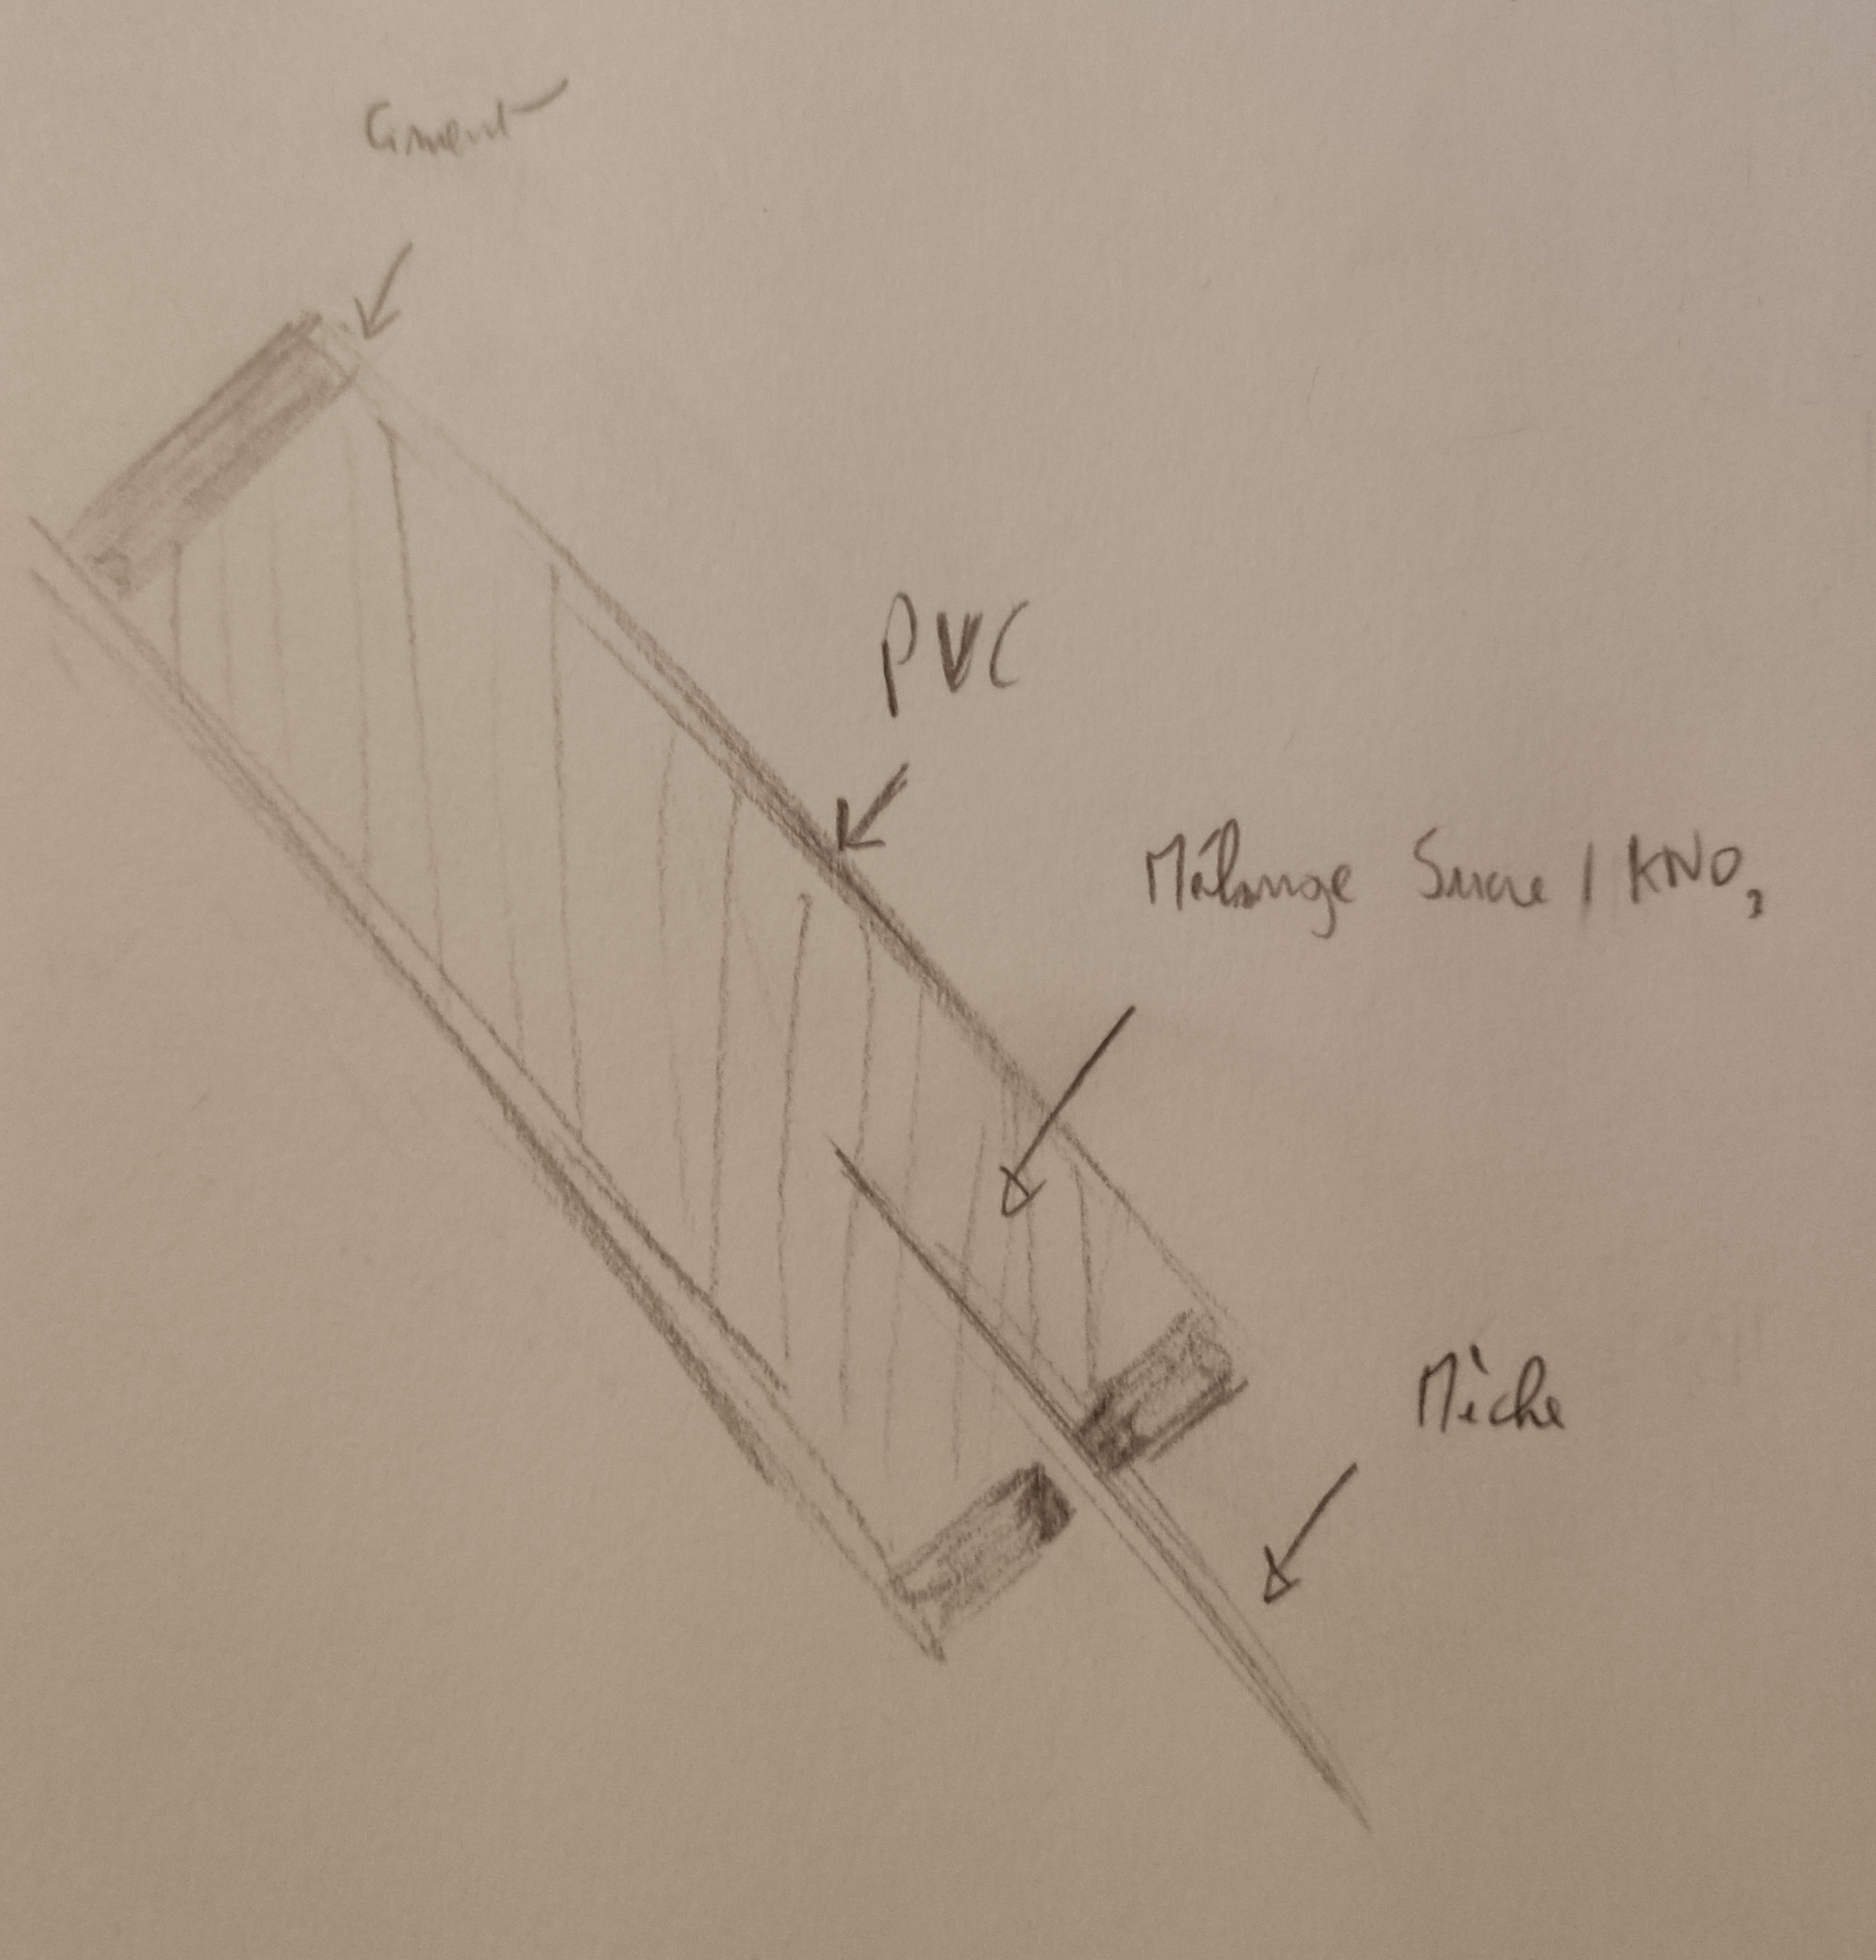 Ciment
PVC
Mélange Sucre / KNO₃
Mèche